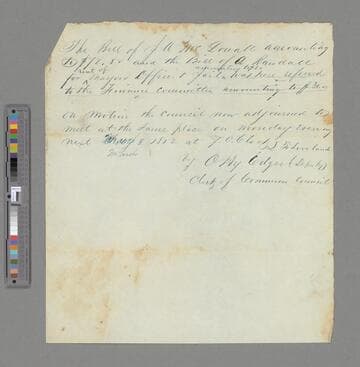 The Bill of J. R. Mc Dowall amounting
to $78.50 and the Bill of A Randall
rent of amounting to
for Mayors Office & Jail was here referred
to the Finance Committee amounting to
on motion the council now adjourned to
meet at the same place on Monday evening
next 8 1852 at 7 O'Clock
by O Hy Edger (Deputy)
Clerk of Common Council